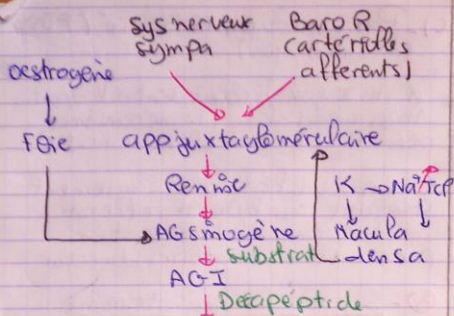 Sys nerveux
sympa
Baro R
(artérielles
afferents)
oestrogène
Foie
app juxtaglomérulaire
Renine
K → Na⁺ TCP
AGsinogène
Macula
densa
Substrat
AGI
Décapéptide